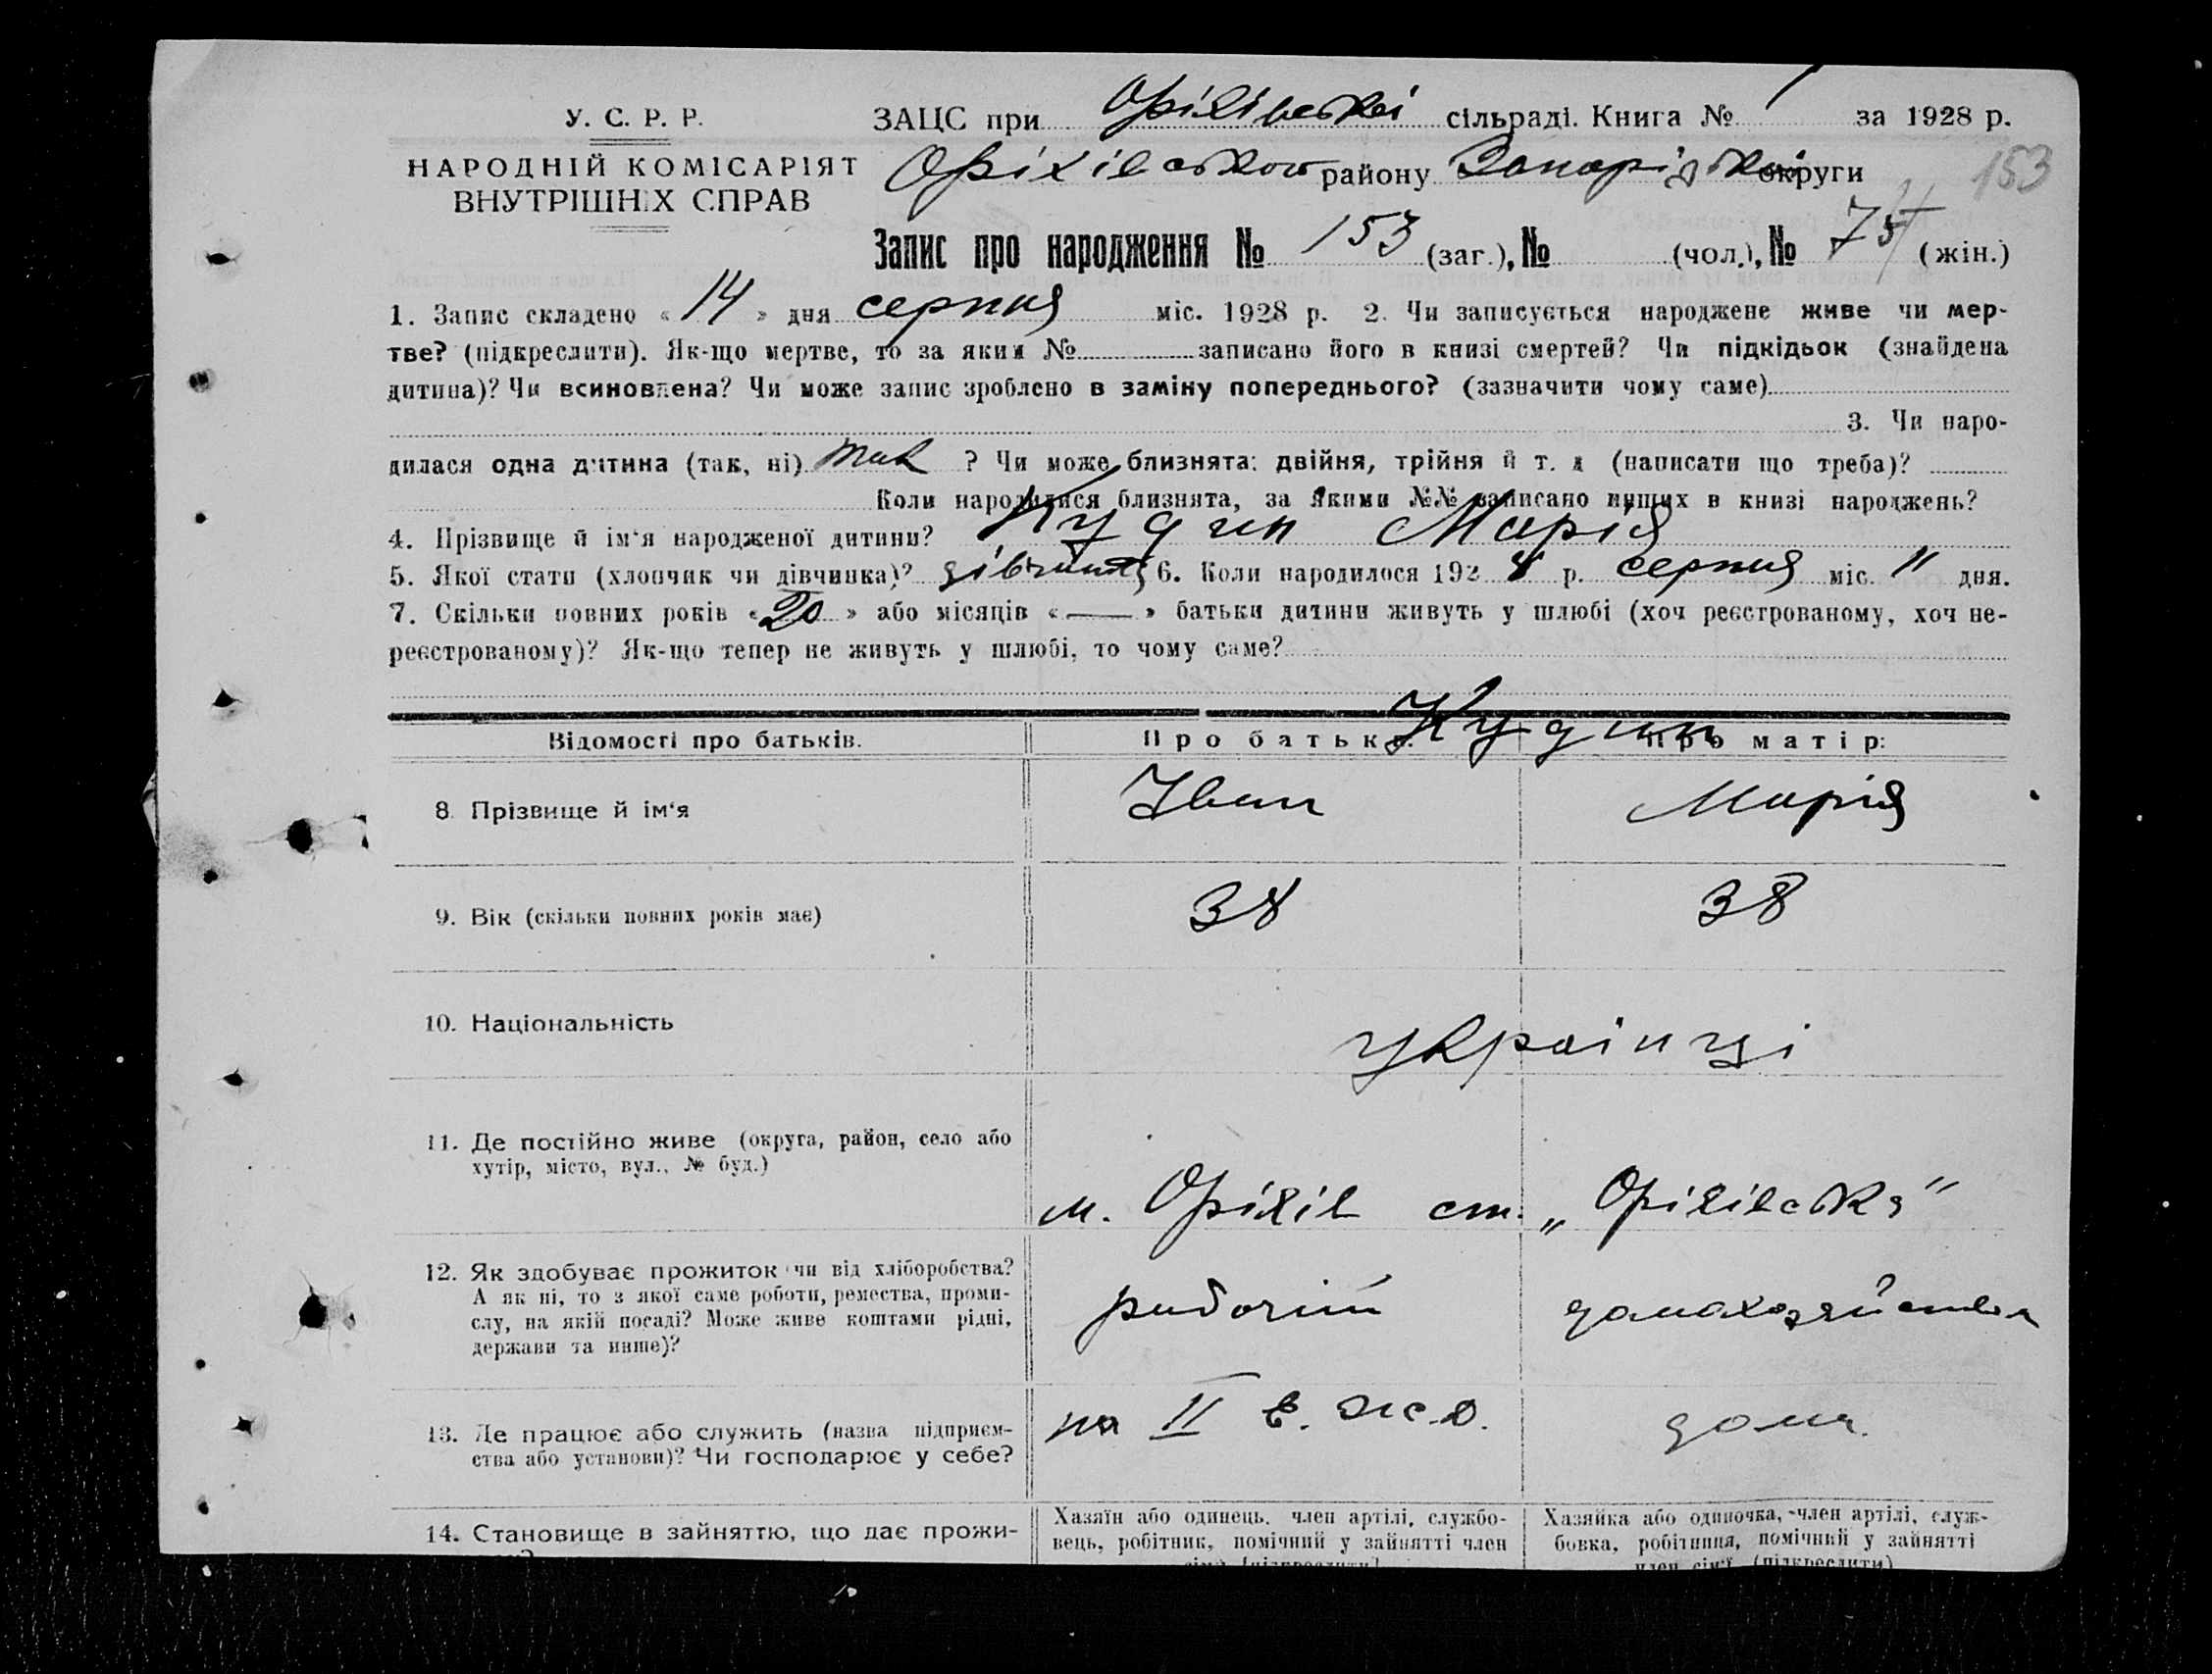 У. С. Р. Р.
НАРОДНІЙ КОМІСАРІЯТ
ВНУТРІШНІХ СПРАВ
ЗАЦС при Оріхівській сільраді. Книга № 1 за 1928 р.
Оріхівського району Запоріжської округи
153
Запис про народження № 153 (заг.), № (чол.), № 75 (жін.)
1. Запис складено « 14 » дня серпня міс. 1928 р. 2. Чи записується народжене живе чи мер-
тве? (підкреслити). Як-що мертве, то за яким № записано його в книзі смертей? Чи підкідьок (знайдена
дитина)? Чи всиновлена? Чи може запис зроблено в заміну попереднього? (зазначити чому саме)
3. Чи наро-
дилася одна дитина (так, ні) так ? Чи може близнята: двійня, трійня й т. д (написати що треба)?
Коли народилися близнята, за якими №№ записано инших в книзі народжень?
4. Прізвище й ім'я народженої дитини? Кудин Марія
5. Якої стати (хлопчик чи дівчинка)? дівчина 6. Коли народилося 1928 р. серпня міс. 11 дня.
7. Скільки повних років « 20 » або місяців « — » батьки дитини живуть у шлюбі (хоч реєстрованому, хоч не-
реєстрованому)? Як-що тепер не живуть у шлюбі, то чому саме?
Відомості про батьків. Про батька: Про матір:
Кудин
8. Прізвище й ім'я Іван Марія
9. Вік (скільки повних років має) 38 38
10. Національність українці
11. Де постійно живе (округа, район, село або
хутір, місто, вул., № буд.)
м. Оріхів ст. „Оріхівська"
12. Як здобуває прожиток чи від хліборобства?
А як ні, то з якої саме роботи, ремества, проми-
слу, на якій посаді? Може живе коштами рідні,
держави та инше)?
рабочий домохозяйства
13. Де працює або служить (назва підприєм-
ства або установи)? Чи господарює у себе?
на II Е. ж.д. дома.
14. Становище в зайняттю, що дає прожи-
Хазяїн або одинець, член артілі, службо-
вець, робітник, помічний у зайнятті член
Хазяйка або одиночка, член артілі, служ-
бовка, робітниця, помічний у зайнятті
член сім'ї (підкреслити)